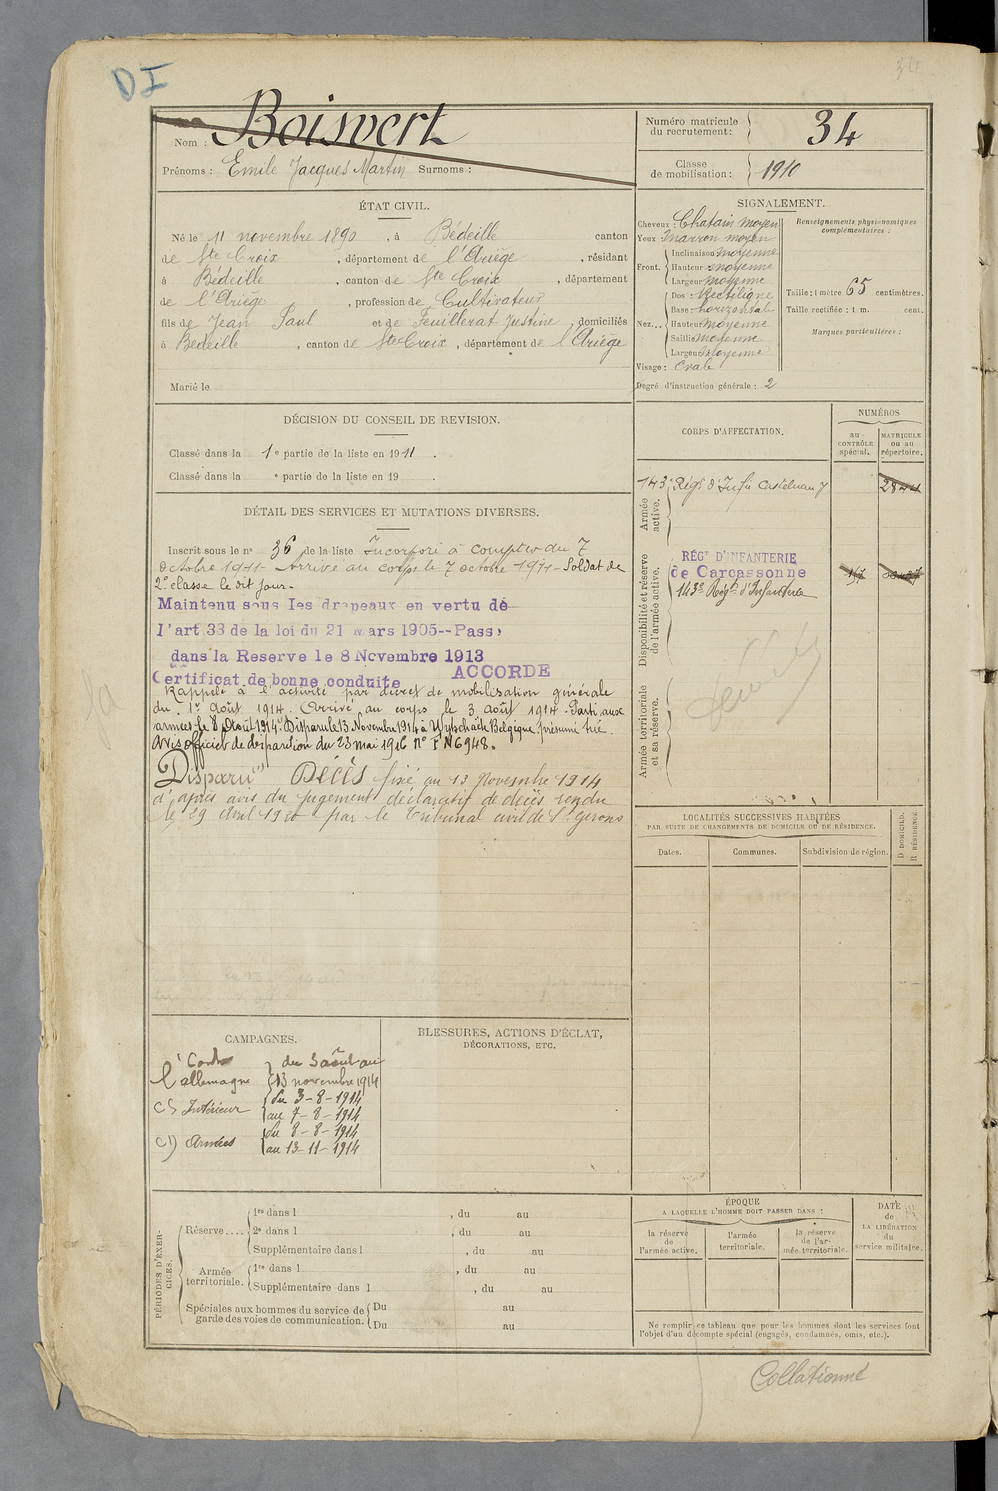 34
DI
Nom : Boisvert
Prénoms : Emile Jacques Martin Surnoms :
Numéro matricule
du recrutement : 34
Classe
de mobilisation : 1910
ÉTAT CIVIL.
Né le 11 novembre 1890, à Bédeille canton
de Ste Croix, département de l'Ariège, résidant
à Bédeille, canton de Ste Croix, département
de l'Ariège, profession de Cultivateur
fils de Jean Paul et de Feuillerat Justine, domiciliés
à Bédeille, canton de Ste Croix, département de l'Ariège
Marié le
SIGNALEMENT.
Cheveux : Chatain moyen
Yeux marron moyen
Front. Inclinaison moyenne
Hauteur moyenne
Largeur moyenne
Nez... Dos : Rectiligne
Base : horizontale
Hauteur moyenne
Saillie moyenne
Largeur moyenne
Visage : Ovale
Degré d'instruction générale : 2
Renseignements physionomiques
complémentaires :
Taille : 1 mètre 65 centimètres.
Taille rectifiée : 1 m. cent.
Marques particulières :
DÉCISION DU CONSEIL DE REVISION.
Classé dans la 1e partie de la liste en 1911.
Classé dans la e partie de la liste en 19 .
DÉTAIL DES SERVICES ET MUTATIONS DIVERSES.
Inscrit sous le no 36 de la liste Incorporé à compter du 7
octobre 1911 Arrivé au corps le 7 octobre 1911 - Soldat de
2e classe le dit jour -
Maintenu sous les drapeaux en vertu de
l'art 33 de la loi du 21 Mars 1905--Passé
dans la Reserve le 8 Novembre 1913
Certificat de bonne conduite ACCORDE
Rappelé à l'activité par décret de mobilisation générale
du 1er Août 1914. Arrivé au corps le 3 août 1914. Parti aux
armées le 8 Août 1914. Disparu le 13 Novembre 1914 à Wytschaete Belgique présumé tué.
Avis officiel de disparition du 23 mai 1916 No FN 6948.
"Disparu" Décès fixé au 13 Novembre 1914
d'après avis du jugement déclaratif de décès rendu
le 29 Avril 1920 par le Tribunal civil de St Girons
CORPS D'AFFECTATION.
NUMÉROS
au
CONTRÔLE
spécial.
MATRICULE
ou au
répertoire.
Armée
active.
143e Régt d'Infie Castelnaudy
Disponibilité et réserve
de l'armée active.
RÉGt D'INFANTERIE
de Carcassonne
143e Régt d'Infanterie
Armée territoriale
et sa réserve.
LOCALITÉS SUCCESSIVES HABITÉES
PAR SUITE DE CHANGEMENTS DE DOMICILE OU DE RÉSIDENCE.
Dates.
Communes.
Subdivision de région.
D. DOMICILE.
R. RÉSIDENCE.
CAMPAGNES.
Contre
l'allemagne
du 3 août au
13 novembre 1914
C S Intérieur
du 3-8-1914
au 7-8-1914
C D Armées
du 8-8-1914
au 13-11-1914
BLESSURES, ACTIONS D'ÉCLAT,
DÉCORATIONS, ETC.
PÉRIODES D'EXER-
CICES.
Réserve....
1re dans l , du au
2e dans l , du au
Supplémentaire dans l , du au
Armée
territoriale.
1re dans l , du au
Supplémentaire dans l , du au
Spéciales aux hommes du service de
garde des voies de communication.
Du au
Du au
ÉPOQUE
A LAQUELLE L'HOMME DOIT PASSER DANS :
la réserve
de
l'armée active.
l'armée
territoriale.
la réserve
de l'ar-
mée territoriale.
DATE
de
LA LIBÉRATION
du
service militaire.
Ne remplir ce tableau que pour les hommes dont les services font
l'objet d'un décompte spécial (engagés, condamnés, omis, etc.).
Collationné